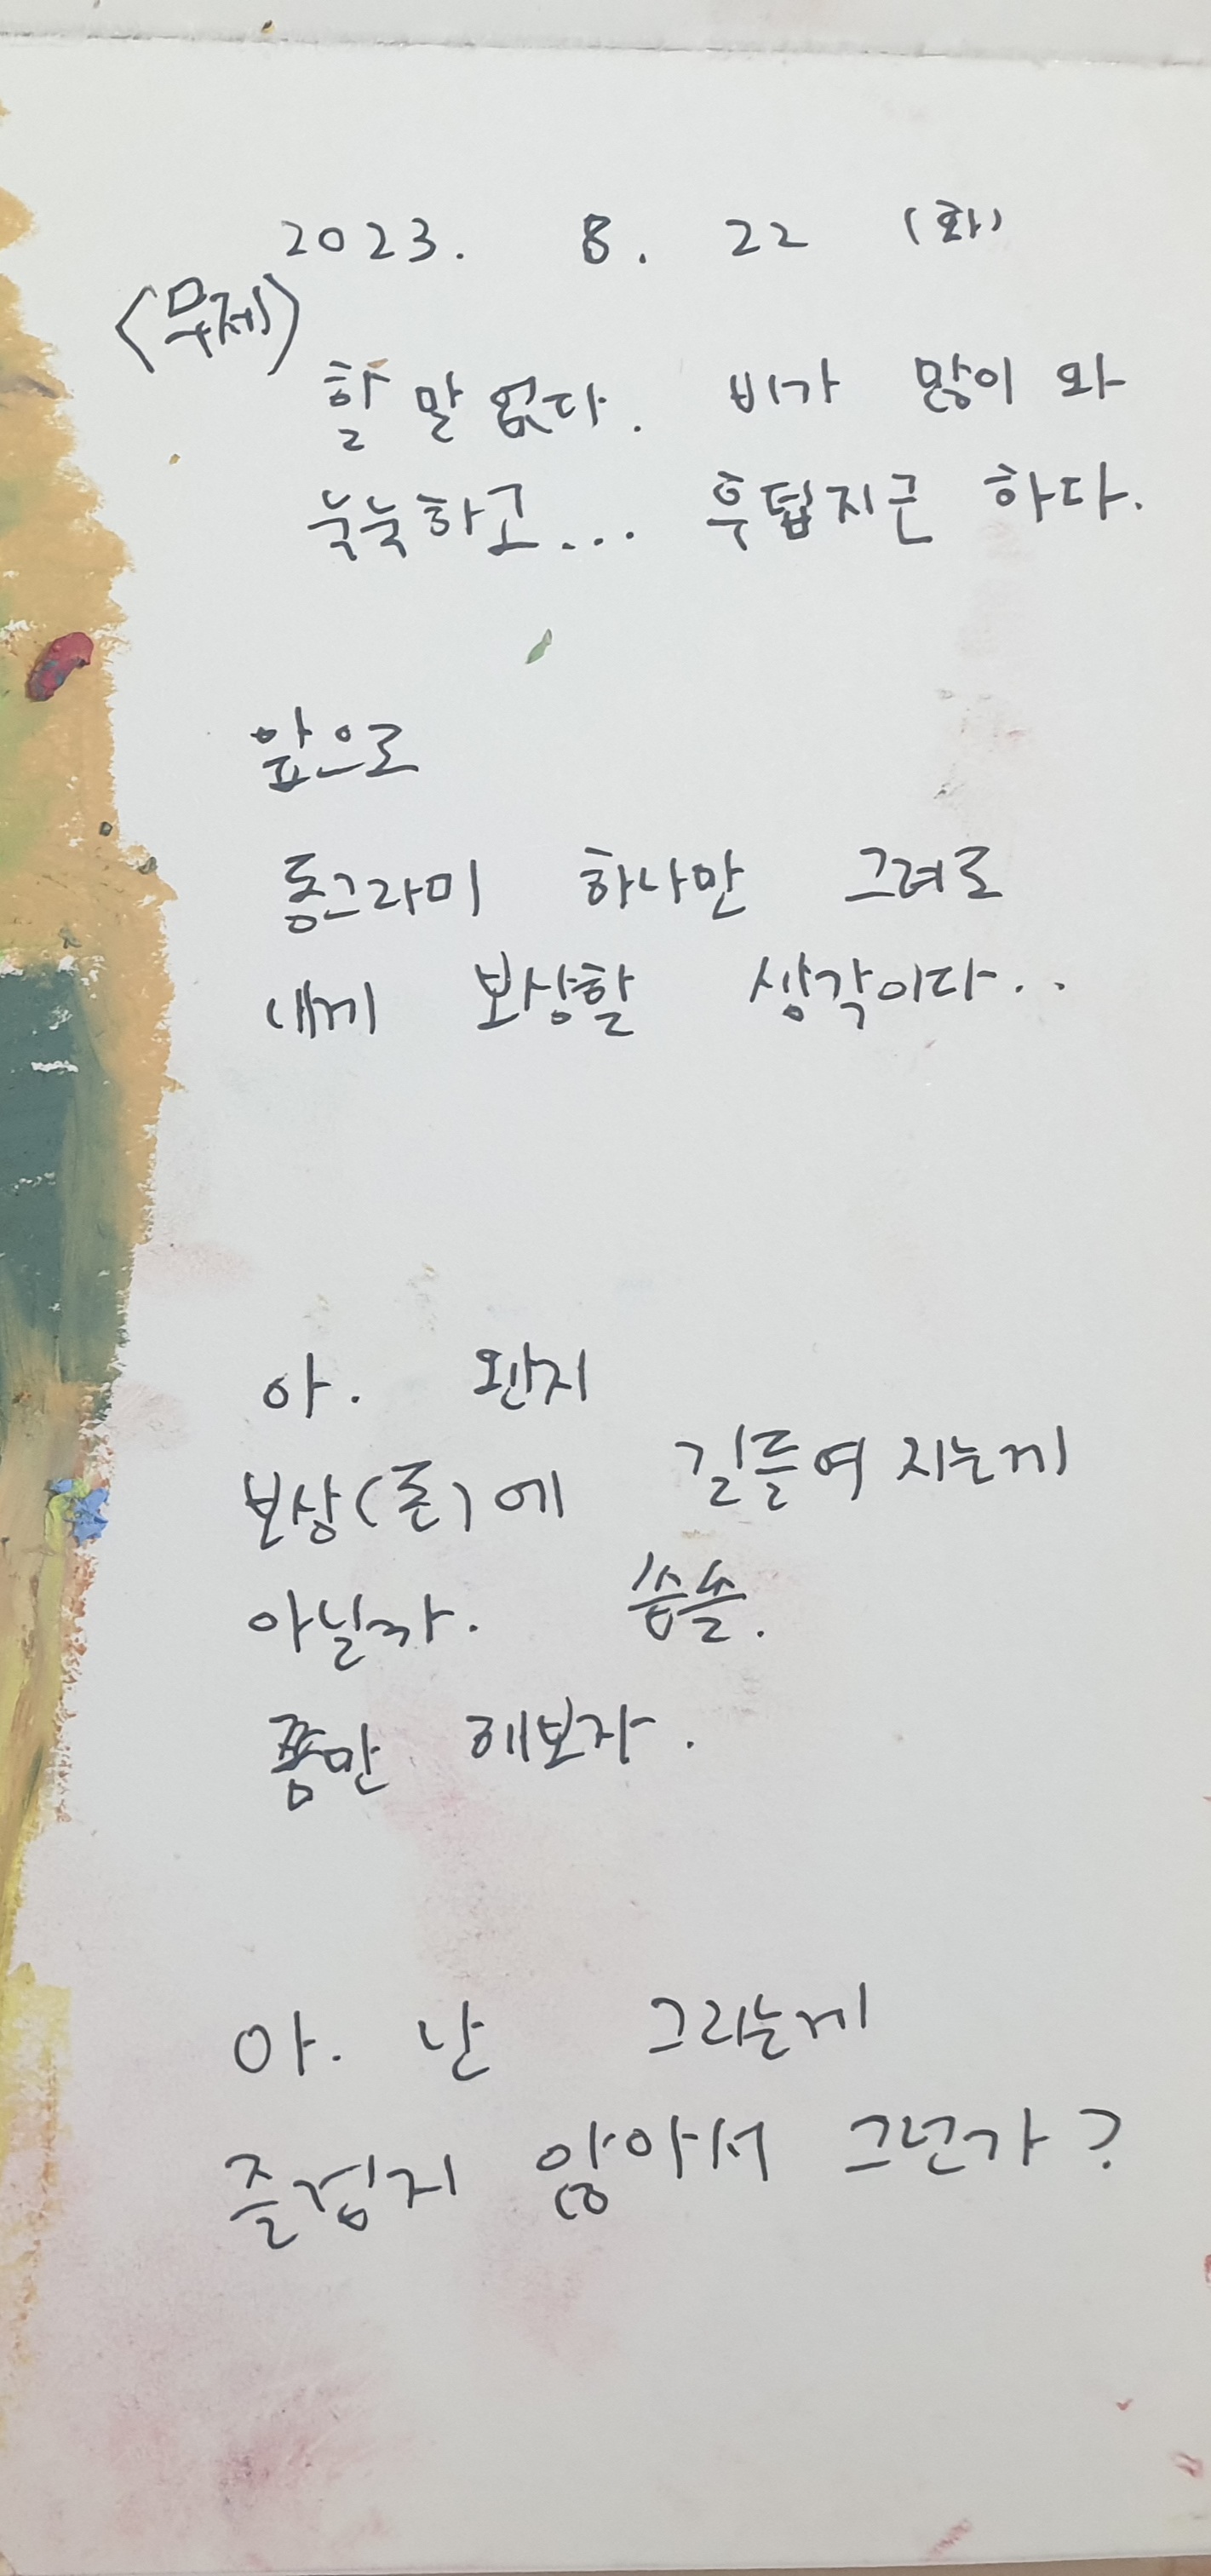 2023. 8. 22 (화)
<무제>
할 말 없다. 비가 많이 와
눅눅하고... 후텁지근 하다.
앞으로
동그라미 하나만 그려도
내게 보상할 생각이다..
아. 왠지
보상(돈)에 길들여 지는게
아닐까. 씁쓸.
쫌만 해보자.
아. 난 그리는게
즐겁지 않아서 그런가?